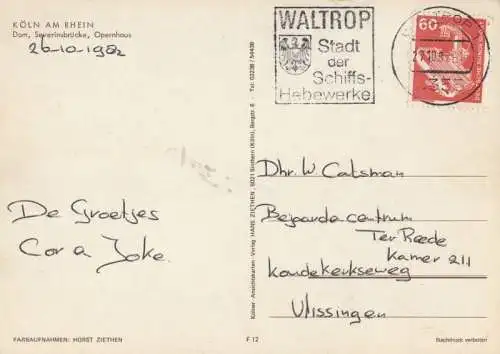 KÖLN AM RHEIN
Dom, Severinsbrücke, Opernhaus
26-10-1982
De Groetjes
Cor a Joke.
FARBAUFNAHMEN: HORST ZIETHEN
Kölner Ansichtskarten-Verlag HANS ZIETHEN · 5021 Sinthern (Köln), Bergstr. 6 · Tel. 02238 / 54439
F 12
WALTROP
Stadt
der
Schiffs-
Hebewerke
60
Dhr. W. Catsman
Bejaarde centrum
Ter Reede
Kamer 211
Koudekerkseweg
Vlissingen
Nachdruck verboten